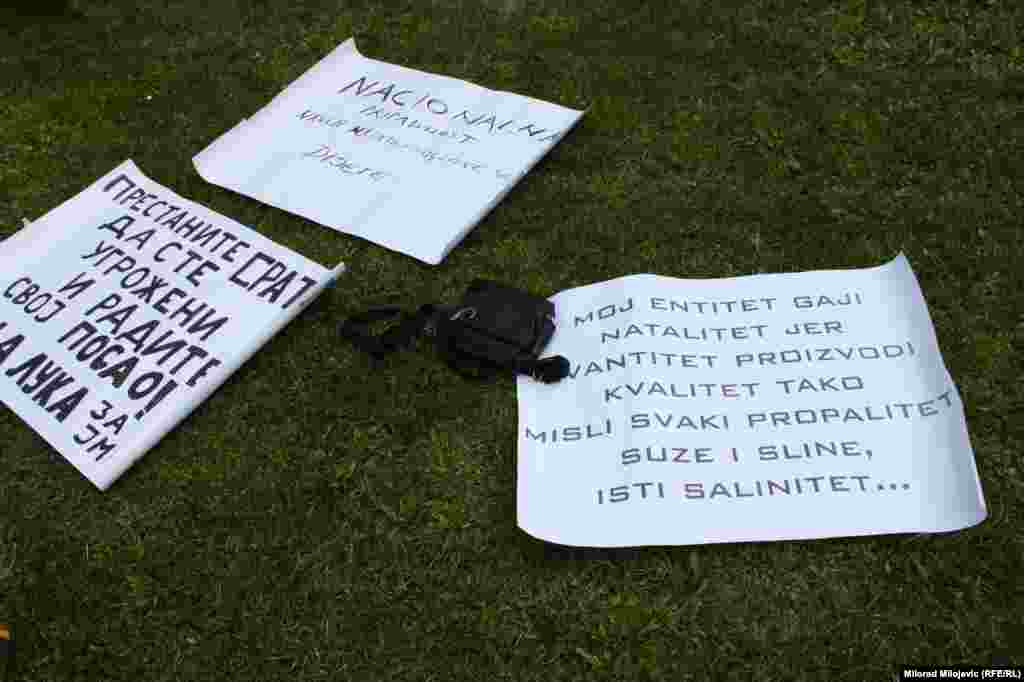 NACIONALNA
DIJETE
ПРЕСТАНИТЕ СРАТ
ДА СТЕ
УГРОЖЕНИ
И РАДИТЕ
СВОЈ ПОСАО!
ЛУКА ЗА
ЈМ
MOJ ENTITET GAJI
NATALITET JER
VANTITET PROIZVODI
KVALITET TAKO
MISLI SVAKI PROPALITET
SUZE I SLINE,
ISTI SALINITET...
Milorad Milojevic (RFE/RL)